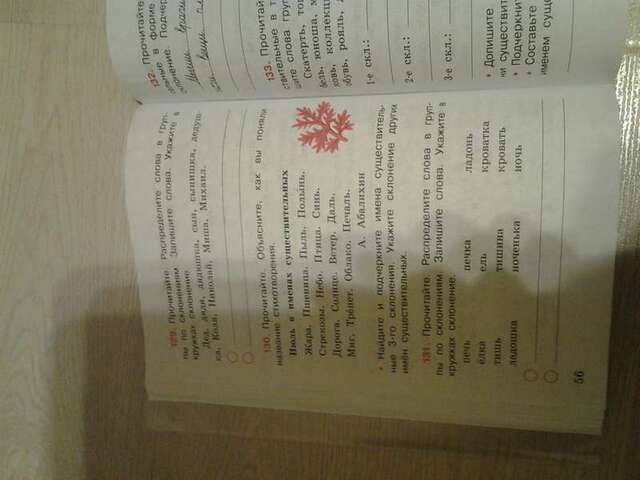 129. Прочитайте. Распределите слова в груп-
пы по склонениям. Запишите слова. Укажите в
кружках склонение.
Дед, дядя, дядюшка, сын, сынишка, дедуш-
ка, Коля, Николай, Миша, Михаил.
130. Прочитайте. Объясните, как вы поняли
название стихотворения.
Июль в именах существительных
Жара. Пшеница. Пыль. Полынь.
Стрекозы. Небо. Птица. Синь.
Дорога. Солнце. Ветер. Даль.
Миг. Трепет. Облако. Печаль.
А. Абалихин
• Найдите и подчеркните имена существитель-
ные 3-го склонения. Укажите склонение других
имён существительных.
131. Прочитайте. Распределите слова в груп-
пы по склонениям. Запишите слова. Укажите в
кружках склонение.
печь печка ладонь
ёлка ель кроватка
тишь тишина кровать
ладошка ноченька ночь
56
132. Прочитайте
ные в форме
склонение. Подчер
133. Прочитай
ствительные в т
шите слова груп
Скатерть, тор
юноша,
коллекц
рояль,
1-е скл.:
2-е скл.:
3-е скл.:
• Допишите
ни существит
• Подчеркнит
• Составьте
именем сущ